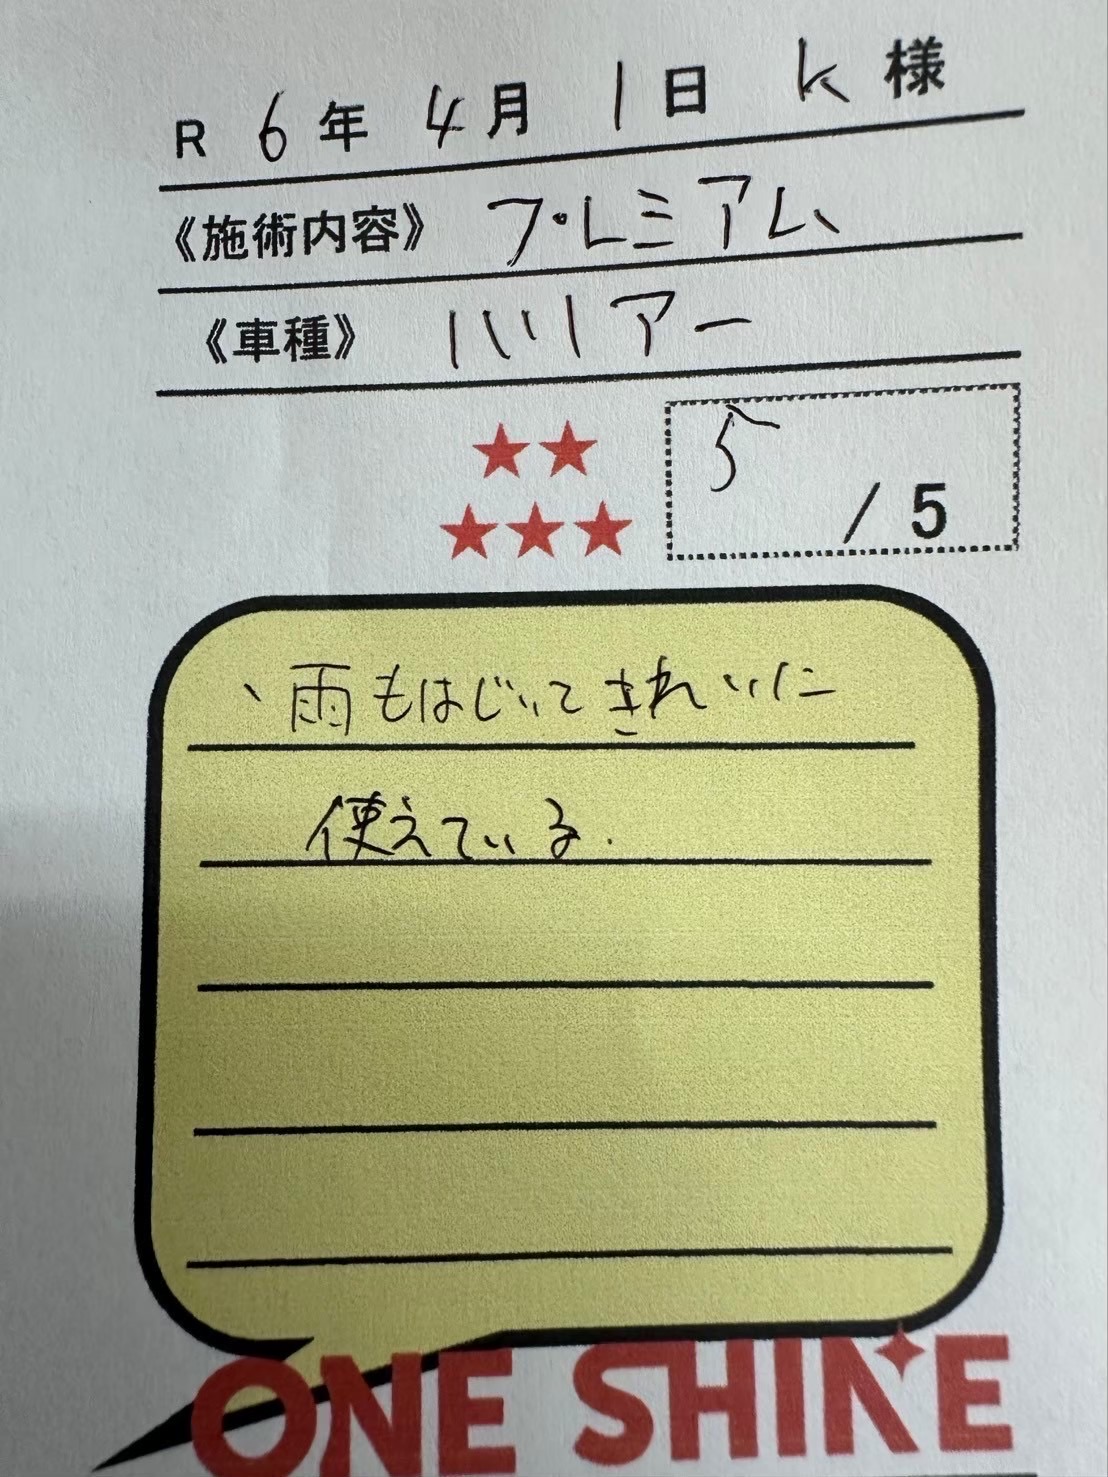 R 6年 4月 1日 K 様
《施術内容》 プレミアム
《車種》 ハリアー
★★
★★★
5 / 5
、雨もはじいてきれいに
使えている.
ONE SHINE